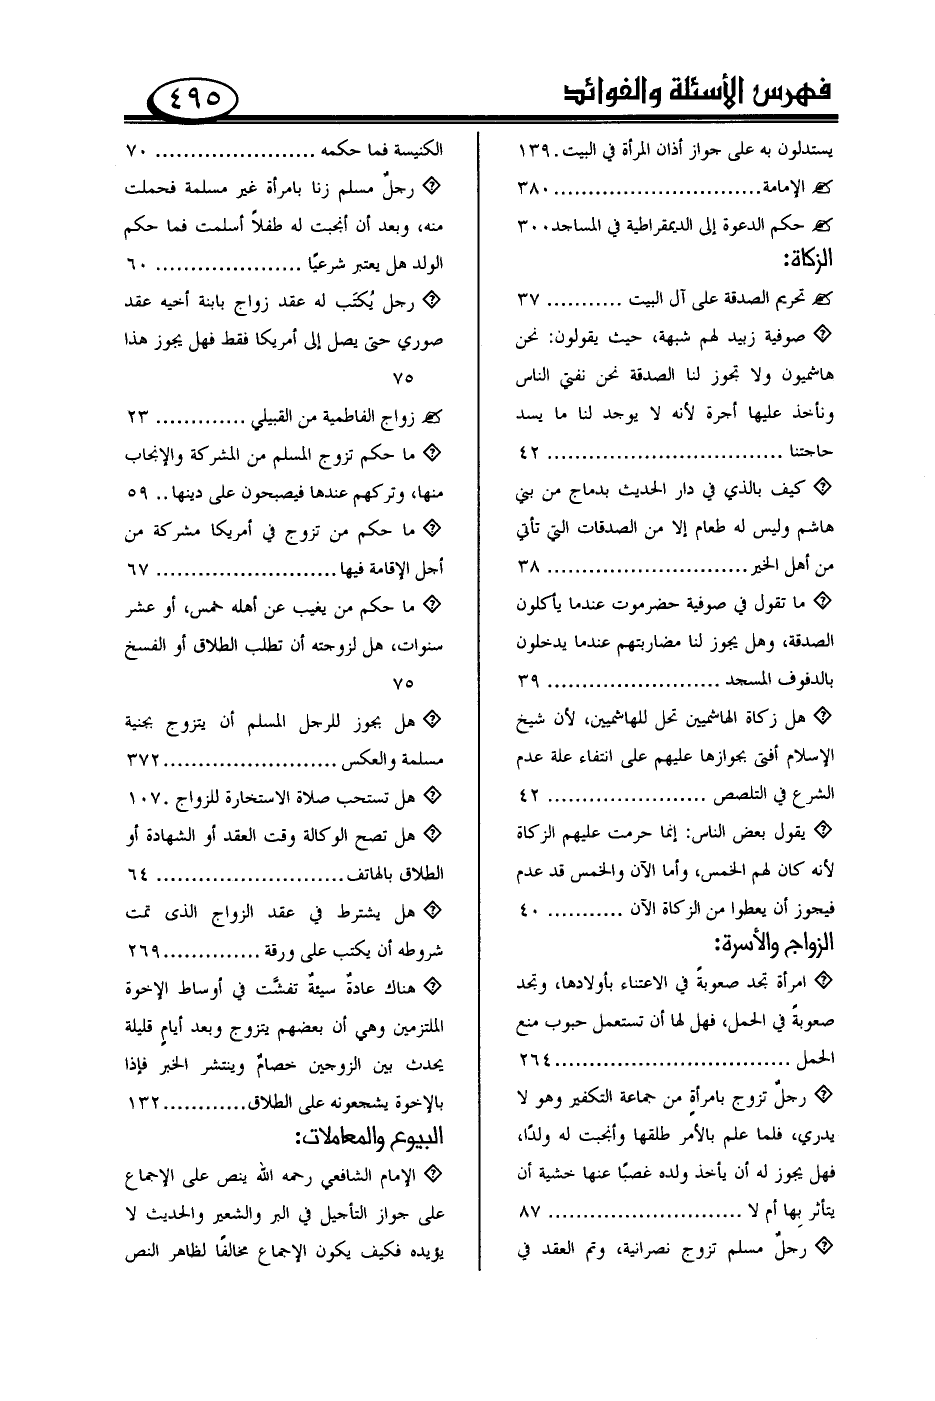 فهرس الأسئلة والفوائد
٤٩٥
يستدلون به على جواز أذان المرأة في البيت. ١٣٩
الإمامة.............................. ٣٨٠
حكم الدعوة إلى الديمقراطية في المساجد.. ٣٠٠
الزكاة:
تحريم الصدقة على آل البيت ........... ٣٧
صوفية زبيد لهم شبهة، حيث يقولون: نحن
هاشميون ولا تجوز لنا الصدقة نحن نفتي الناس
ونأخذ عليها أجرة لأنه لا يوجد لنا ما يسد
حاجتنا .................................. ٤٢
كيف بالذي في دار الحديث بدماج من بني
هاشم وليس له طعام إلا من الصدقات التي تأتي
من أهل الخير............................. ٣٨
ما تقول في صوفية حضرموت عندما يأكلون
الصدقة، وهل يجوز لنا مضاربتهم عندما يدخلون
بالدفوف المسجد ......................... ٣٩
هل زكاة الهاشميين تحل للهاشميين، لأن شيخ
الإسلام أفتى بجوازها عليهم على انتفاء علة عدم
الشرع في التلصص ....................... ٤٢
يقول بعض الناس: إنما حرمت عليهم الزكاة
لأنه كان لهم الخمس، وأما الآن والخمس قد عدم
فيجوز أن يعطوا من الزكاة الآن ........... ٤٠
الزواج والأسرة:
امرأة تجد صعوبةً في الاعتناء بأولادها، وتجد
صعوبةً في الحمل، فهل لها أن تستعمل حبوب منع
الحمل ..................................٢٦٤
رجلٌ تزوج بامرأةٍ من جماعة التكفير وهو لا
يدري، فلما علم بالأمر طلقها وأنجبت له ولدًا،
فهل يجوز له أن يأخذ ولده غصبًا عنها خشية أن
يتأثر بها أم لا ............................ ٨٧
رجلٌ مسلم تزوج نصرانية، وتم العقد في
الكنيسة فما حكمه ....................... ٧٠
رجلٌ مسلم زنا بامرأة غير مسلمة فحملت
منه، وبعد أن أنجبت له طفلاً أسلمت فما حكم
الولد هل يعتبر شرعيًا ..................... ٦٠
رجل يُكتَب له عقد زواج بابنة أخيه عقد
صوري حتى يصل إلى أمريكا فقط فهل يجوز هذا
٧٥
زواج الفاطمية من القبيلي ............. ٢٣
ما حكم تزوج المسلم من المشركة والإنجاب
منها، وتركهم عندها فيصبحون على دينها.. ٥٩
ما حكم من تزوج في أمريكا مشركة من
أجل الإقامة فيها.......................... ٦٧
ما حكم من يغيب عن أهله خمس، أو عشر
سنوات، هل لزوجته أن تطلب الطلاق أو الفسخ
٧٥
هل يجوز للرجل المسلم أن يتزوج بجنية
مسلمة والعكس .........................٣٧٢
هل تستحب صلاة الاستخارة للزواج .١٠٧
هل تصح الوكالة وقت العقد أو الشهادة أو
الطلاق بالهاتف........................... ٦٤
هل يشترط في عقد الزواج الذى تمت
شروطه أن يكتب على ورقة ..............٢٦٩
هناك عادةٌ سيئةٌ تفشَّت في أوساط الإخوة
الملتزمين وهي أن بعضهم يتزوج وبعد أيامٍ قليلة
يحدث بين الزوجين خصامٌ وينتشر الخبر فإذا
بالإخوة يشجعونه على الطلاق............١٣٢
البيوع والمعاملات:
الإمام الشافعي رحمه الله ينص على الإجماع
على جواز التأجيل في البر والشعير والحديث لا
يؤيده فكيف يكون الإجماع مخالفًا لظاهر النص